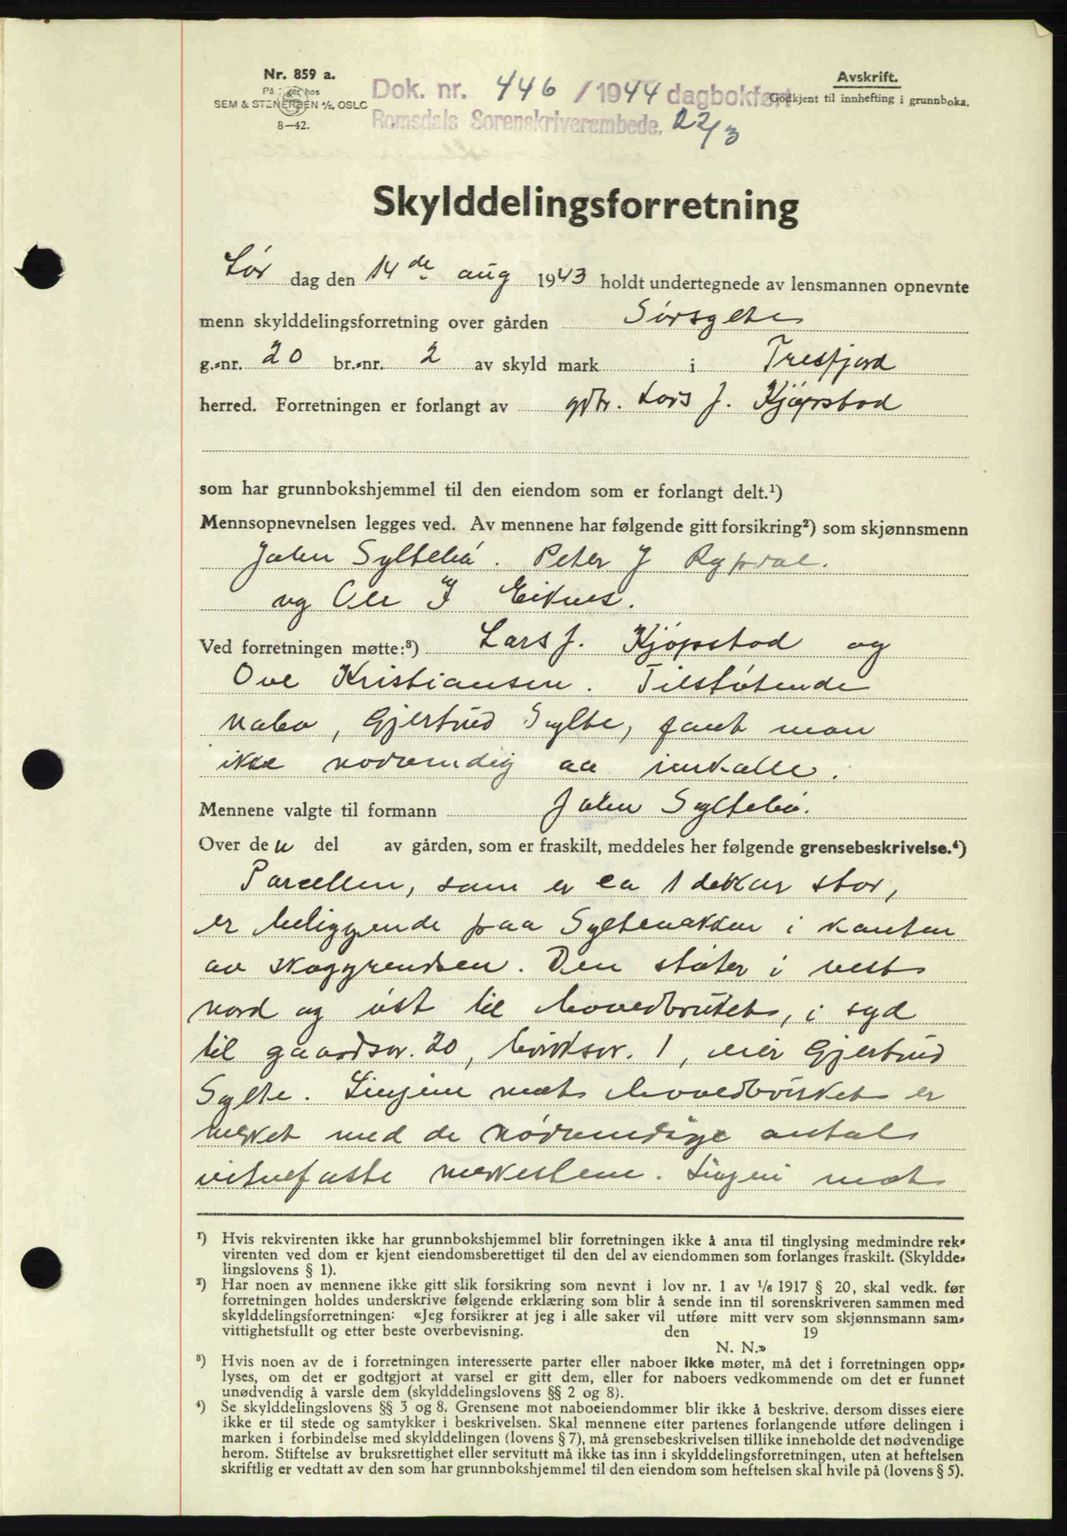 Nr. 859 a.
På lager hos
SEM & STENERSEN A/S, OSLO
8—42.
Dok. nr. 446 / 1944 dagbokført
Romsdals Sorenskriverembede, 22/3
Avskrift.
Godkjent til innhefting i grunnboka.
Skylddelingsforretning
Lør dag den 14de aug 1943 holdt undertegnede av lensmannen opnevnte
menn skylddelingsforretning over gården Sørsylte
g.-nr. 20 br.-nr. 2 av skyld mark i Tresfjord
herred. Forretningen er forlangt av gbr. Lars J. Kjøpstad
som har grunnbokshjemmel til den eiendom som er forlangt delt.¹)
Mennsopnevnelsen legges ved. Av mennene har følgende gitt forsikring²) som skjønnsmenn
Johan Syltebø. Peter J Rypdal.
og Ole J Eiknes.
Ved forretningen møtte:³) Lars J. Kjøpstad og
Ove Kristiansen. Tilstøtende
nabo, Gjertrud Sylte, fant man
ikke nødvendig aa innkalle.
Mennene valgte til formann Johan Syltebø.
Over den del av gården, som er fraskilt, meddeles her følgende grensebeskrivelse.⁴)
Parcellen, som er ca 1 dekar stor,
er beliggende paa Syltenakken i kanten
av skoggrendsen. Den støter i vest
nord og øst til hovedbruket, i syd
til gaardsnr. 20, bruksnr. 1, eier Gjertrud
Sylte. Linjen mot hovedbruket er
merket med de nødvendige antal
vitnefaste merkestene. Linjen mot
¹) Hvis rekvirenten ikke har grunnbokshjemmel blir forretningen ikke å anta til tinglysing medmindre rek-
virenten ved dom er kjent eiendomsberettiget til den del av eiendommen som forlanges fraskilt. (Skyldde-
lingslovens § 1).
²) Har noen av mennene ikke gitt slik forsikring som nevnt i lov nr. 1 av 1/6 1917 § 20, skal vedk. før
forretningen holdes underskrive følgende erklæring som blir å sende inn til sorenskriveren sammen med
skylddelingsforretningen: «Jeg forsikrer at jeg i alle saker vil utføre mitt verv som skjønnsmann sam-
vittighetsfullt og etter beste overbevisning. den 19
N. N.»
³) Hvis noen av de i forretningen interesserte parter eller naboer ikke møter, må det i forretningen opp-
lyses, om det er godtgjort at varsel er gitt dem, eller for naboers vedkommende om det er funnet
unødvendig å varsle dem (skylddelingslovens §§ 2 og 8).
⁴) Se skylddelingslovens §§ 3 og 8. Grensene mot naboeiendommer blir ikke å beskrive, dersom disses eiere
ikke er til stede og samtykker i beskrivelsen. Skal mennene etter partenes forlangende utføre delingen i
marken i forbindelse med skylddelingen (lovens § 7), må grensebeskrivelsen tillike inneholde det nødvendige
herom. Stiftelse av bruksrettighet eller servitutt må ikke tas inn i skylddelingsforretningen, uten at heftelsen
skriftlig er vedtatt av den som har grunnbokshjemmel til den eiendom som heftelsen skal hvile på (lovens § 5).